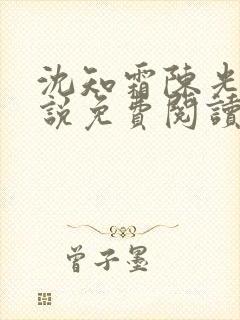 沈知霜陳光
說免費閱讀
曾子墨